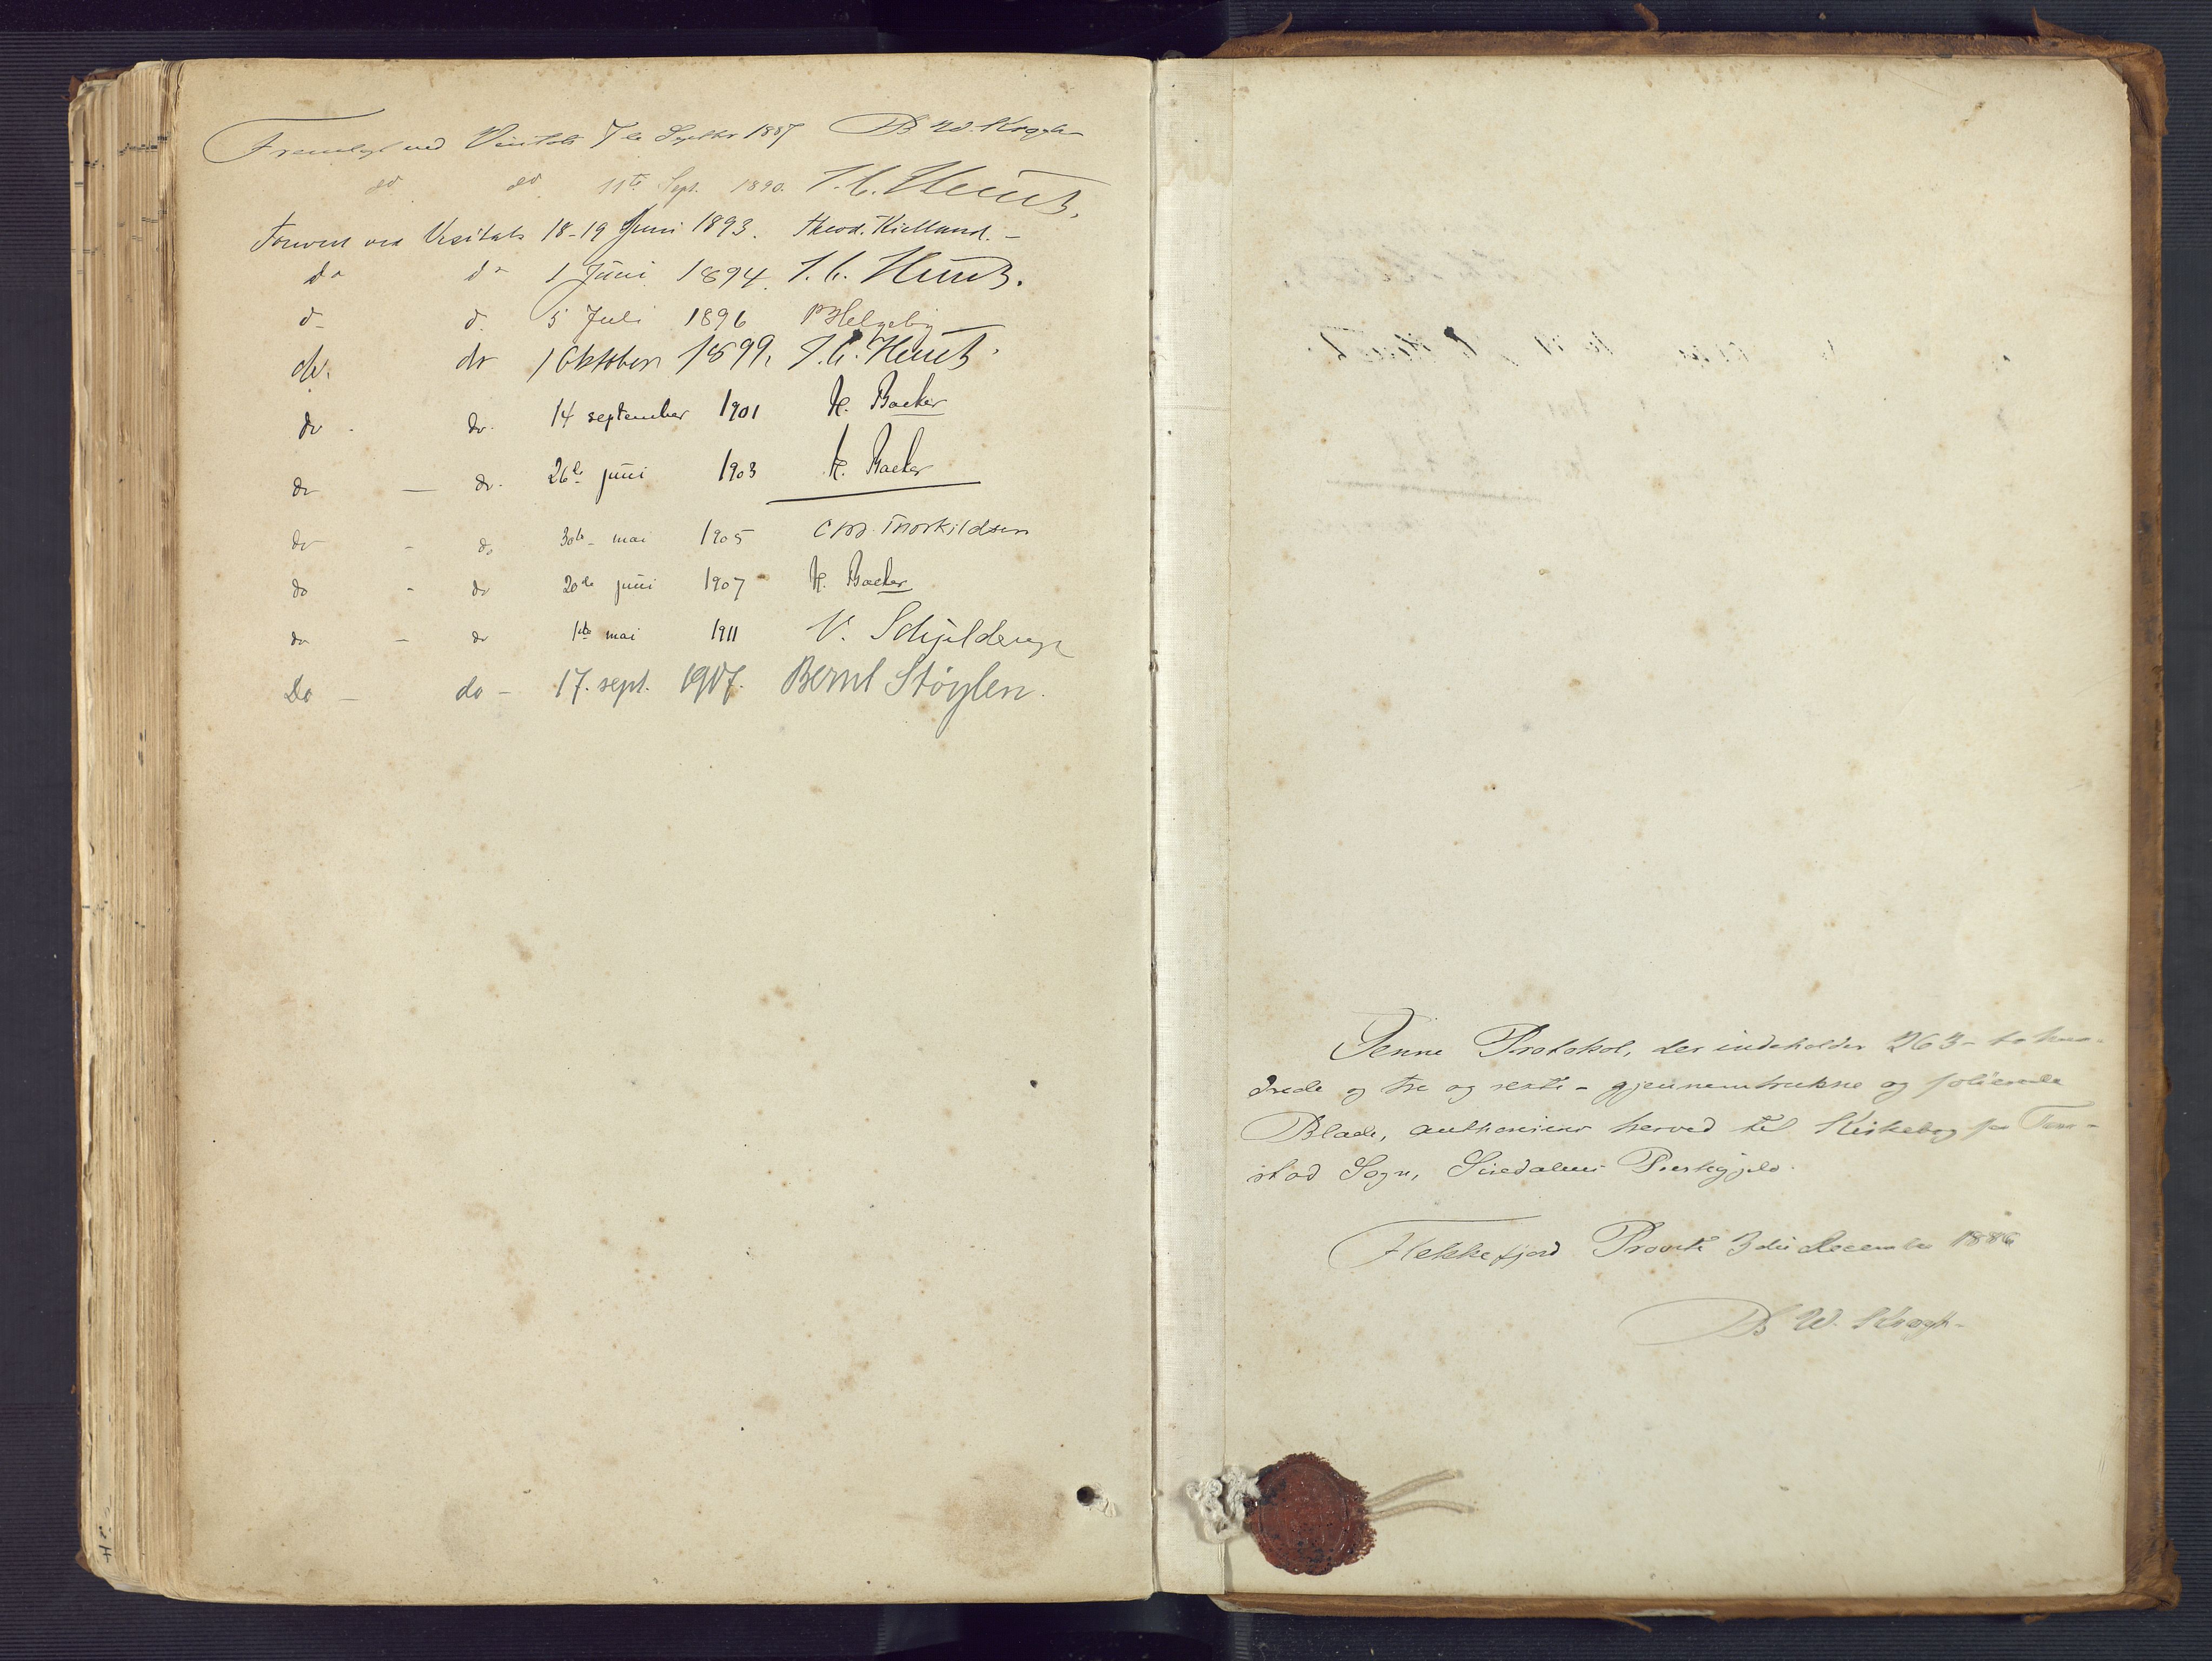 Fremlagt ved Visitats 7de Septbr 1887 B W. Krogh
do do 11te Sept. 1890. J. C. Heuch.
Forevist ved Visitats 18-19 Juni 1893. Theod. Kielland. -
do do 1 Juni 1894. J. C. Heuch.
d- d. 5 Juli 1896
do. do 1 Oktober 1899, J. C. Heuch.
do - do. 14 september 1901 H. Backer
do — do. 26de juni 1903 H. Backer
do - do 30te mai 1905 Thorkildsen
do - do 20de juni 1907 H. Backer
do - do 1ste mai 1911 V. Schjelderup
Do - do - 17. sept. 1917. Bernt Støylen.
Denne Protokol, der indeholder 263 - to hun-
drede og tre og sexti - gjennemtrukne og folierede
Blade, authoriseres herved til Kirkebog for Ton-
stad Sogn, Siredalens Præstegjeld.
Flekkefjord Provsti 3die December 1886
B W. Krogh